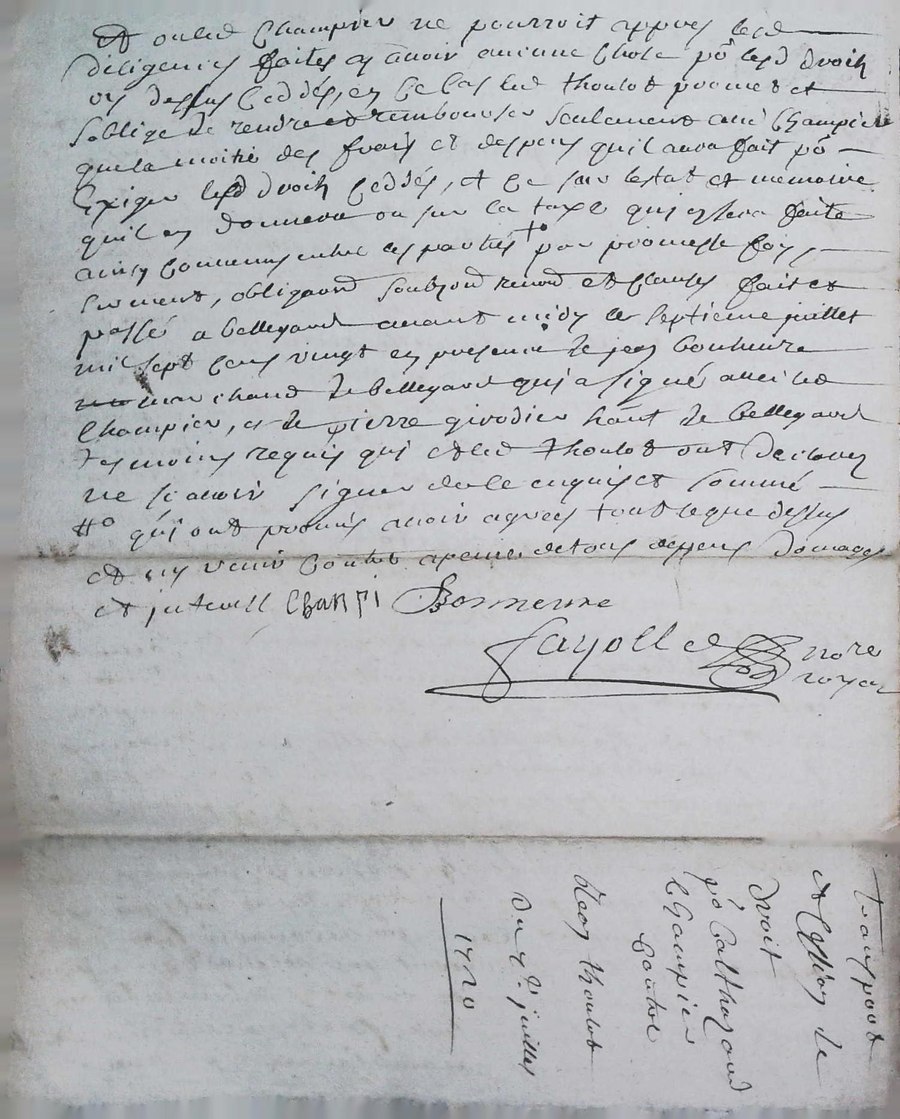 Et ou led Champier ne pourroit appres lesd
diligences faites en avoir aucune chose po lesd droits
cy dessus ceddés, en ce cas led thoulot promet et
soblige de rendre et rembourser seulement aud Champier
que la moitié des frais et despens quil aura fait po
Exiger lesd droits ceddés, et ce sur lestat et memoire
quil en donnera ou sur la taxe qui en sera faite
ainsy Convenu entre les parties par promesse foy,
serment, obligaond soubzond renond et clauses fait et
passé a bellegarde avant midy le septieme juillet
mil sept cens vingt en presence de jean bonneure
marchand de bellegarde qui a signé avec led
Champier, et de pierre givodier habant de bellegarde
tesmoins requis qui et led thoulot ont declaré
ne scavoir signer de ce enquis et sommé
# qui ont promis avoir agrees tout ce que dessus
et ny venir contre a peine de tous despens domages
et interest CHANPI Bonneure
fayolle nore
royal
transport
et cession de
droit
po balthazard
Champier
contre
leon thoulot
du 7e juillet
1720